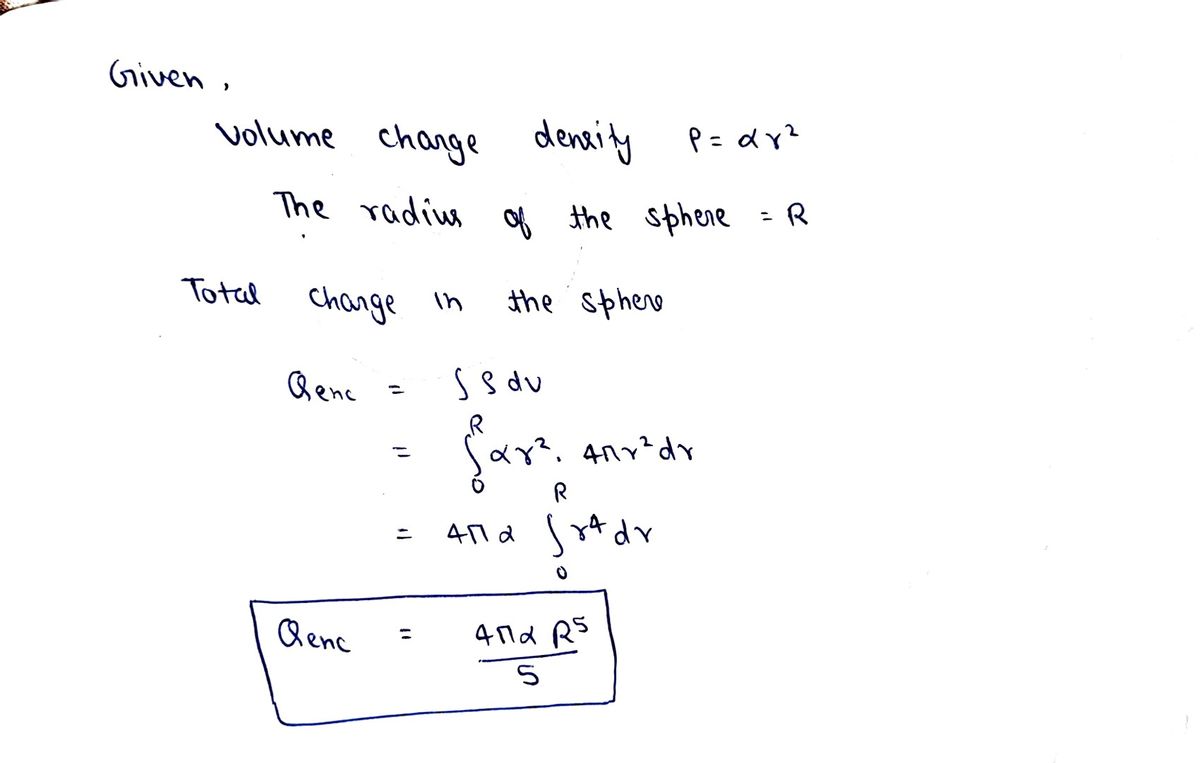 Given ,
volume charge density ρ = αr²
The radius of the sphere = R
Total charge in the sphere
Qenc = ∫ ρ dv
= ∫₀ᴿ αr². 4πr² dr
= 4πα ∫₀ᴿ r⁴ dr
Qenc = 4πα R⁵ / 5